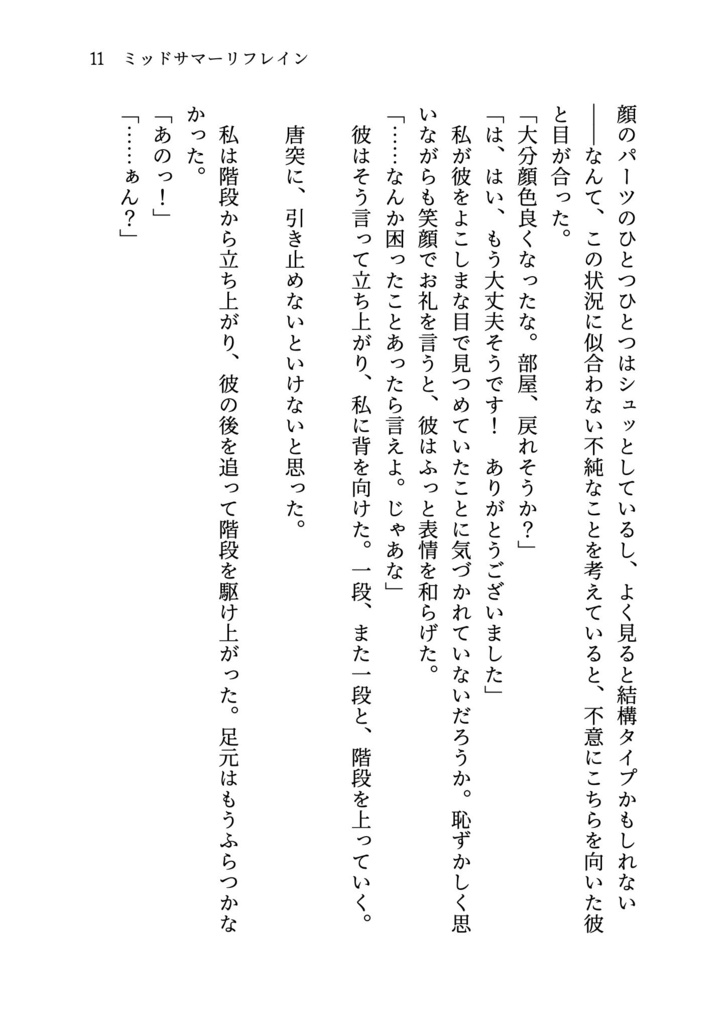 11　ミッドサマーリフレイン
顔のパーツのひとつひとつはシュッとしているし、よく見ると結構タイプかもしれない
――なんて、この状況に似合わない不純なことを考えていると、不意にこちらを向いた彼
と目が合った。
「大分顔色良くなったな。部屋、戻れそうか？」
「は、はい、もう大丈夫そうです！　ありがとうございました」
　私が彼をよこしまな目で見つめていたことに気づかれていないだろうか。恥ずかしく思
いながらも笑顔でお礼を言うと、彼はふっと表情を和らげた。
「……なんか困ったことあったら言えよ。じゃあな」
　彼はそう言って立ち上がり、私に背を向けた。一段、また一段と、階段を上っていく。
　唐突に、引き止めないといけないと思った。
　私は階段から立ち上がり、彼の後を追って階段を駆け上がった。足元はもうふらつかな
かった。
「あのっ！」
「……ぁん？」